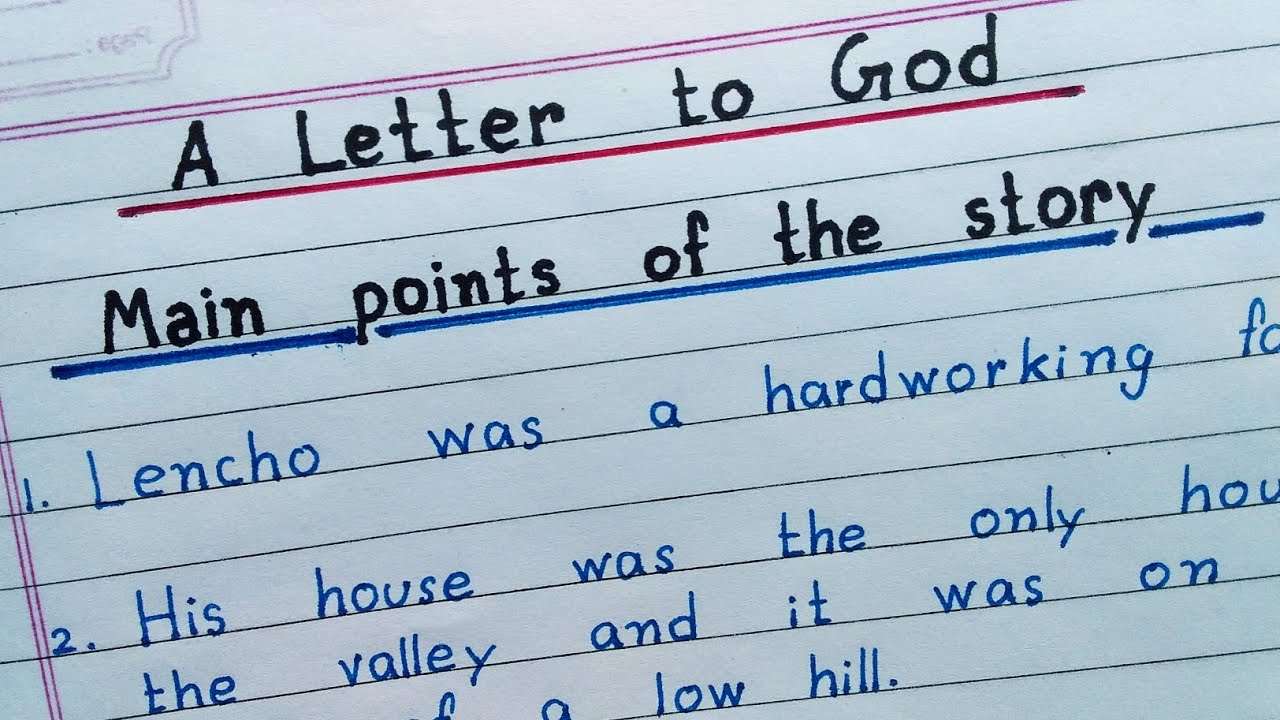 A Letter to God
Main points of the story
1. Lencho was a hardworking
2. His house was the only
the valley and it was on
a low hill.